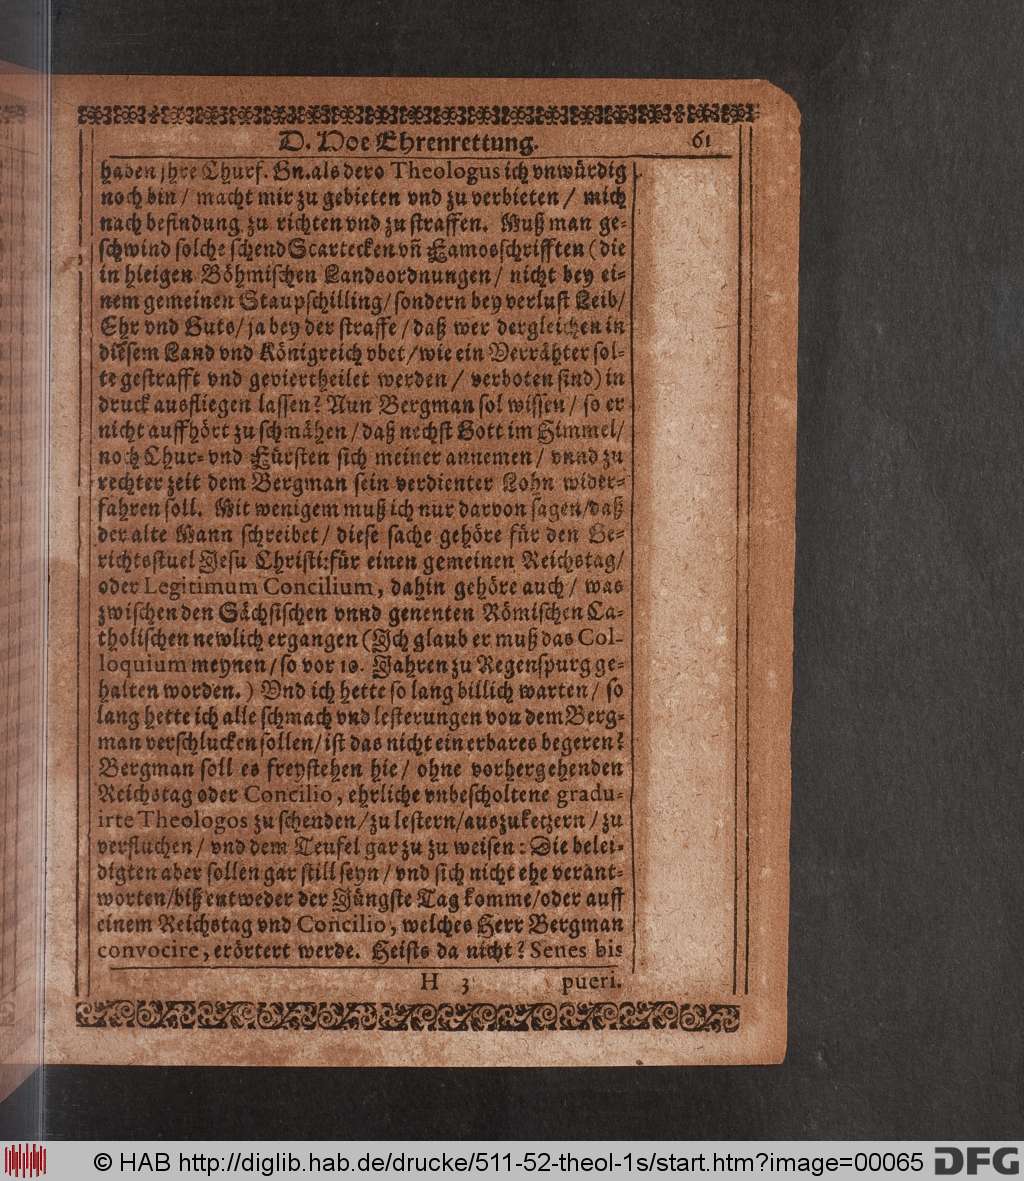 D. Hoe Ehrenrettung. 61
haben jhre Churf. Gn. als dero Theologus ich vnwürdig
noch bin / macht mir zu gebieten vnd zu verbieten / mich
nach befindung zu richten vnd zu straffen. Muß man ge-
schwind solche schend Scartecken vñ Famosschrifften (die
in hieigen Böhmischen Landsordnungen / nicht bey ei-
nem gemeinen Staupschilling / sondern bey verlust Leib /
Ehr vnd Guts / ja bey der straffe / daß wer dergleichen in
diesem Land vnd Königreich vbet / wie ein Verrähter sol-
te gestrafft vnd geviertheilet werden / verboten sind) in
druck ausfliegen lassen? Nun Bergman sol wissen / so er
nicht auffhört zu schmähen / daß nechst Gott im Himmel /
noch Chur- vnd Fürsten sich meiner annemen / vnnd zu
rechter zeit dem Bergman sein verdienter Lohn wider-
fahren soll. Mit wenigem muß ich nur darvon sagen / daß
der alte Mann schreibet / diese sache gehöre für den Ge-
richtsstuel Jesu Christi: für einen gemeinen Reichstag /
oder Legitimum Concilium, dahin gehöre auch / was
zwischen den Sächsischen vnnd genenten Römischen Ca-
tholischen newlich ergangen (Jch glaub er muß das Col-
loquium meynen / so vor 19. Jahren zu Regenspurg ge-
halten worden.) Vnd ich hette so lang billich warten / so
lang hette ich alle schmach vnd lesterungen von dem Berg-
man verschlucken sollen / ist das nicht ein erbares begeren?
Bergman soll es freystehen hie / ohne vorhergehenden
Reichstag oder Concilio, ehrliche vnbescholtene gradu-
irte Theologos zu schenden / zu lestern / auszuketzern / zu
verfluchen / vnd dem Teufel gar zu zu weisen: Die belei-
digten aber sollen gar still seyn / vnd sich nicht ehe verant-
worten / biß entweder der Jüngste Tag komme / oder auff
einem Reichstag vnd Concilio, welches Herr Bergman
convocire, erörtert werde. Heists da nicht? Senes bis
H 3 pueri.
© HAB http://diglib.hab.de/drucke/511-52-theol-1s/start.htm?image=00065 DFG